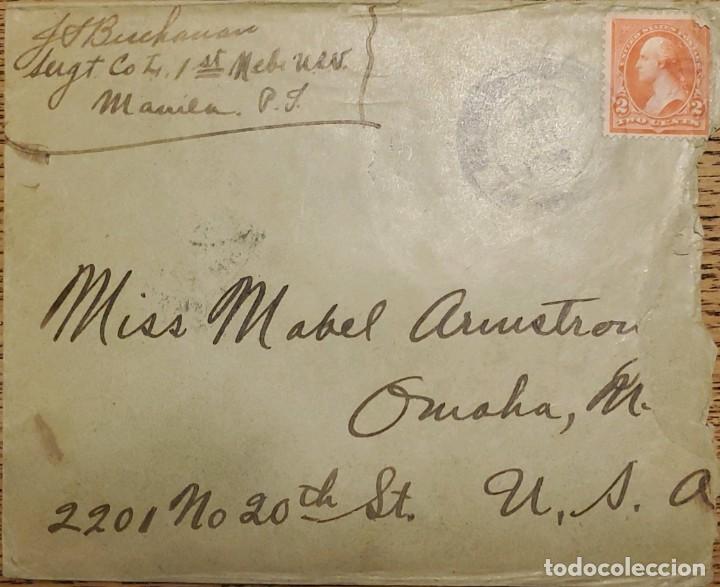 J S Buchanan
Sergt Co L, 1st Nebr U S V.
Manila P. I.
UNITED STATES
2 2
TWO CENTS
Miss Mabel Armstron
Omaha, N
2201 No 20th St. U. S. A
todocoleccion